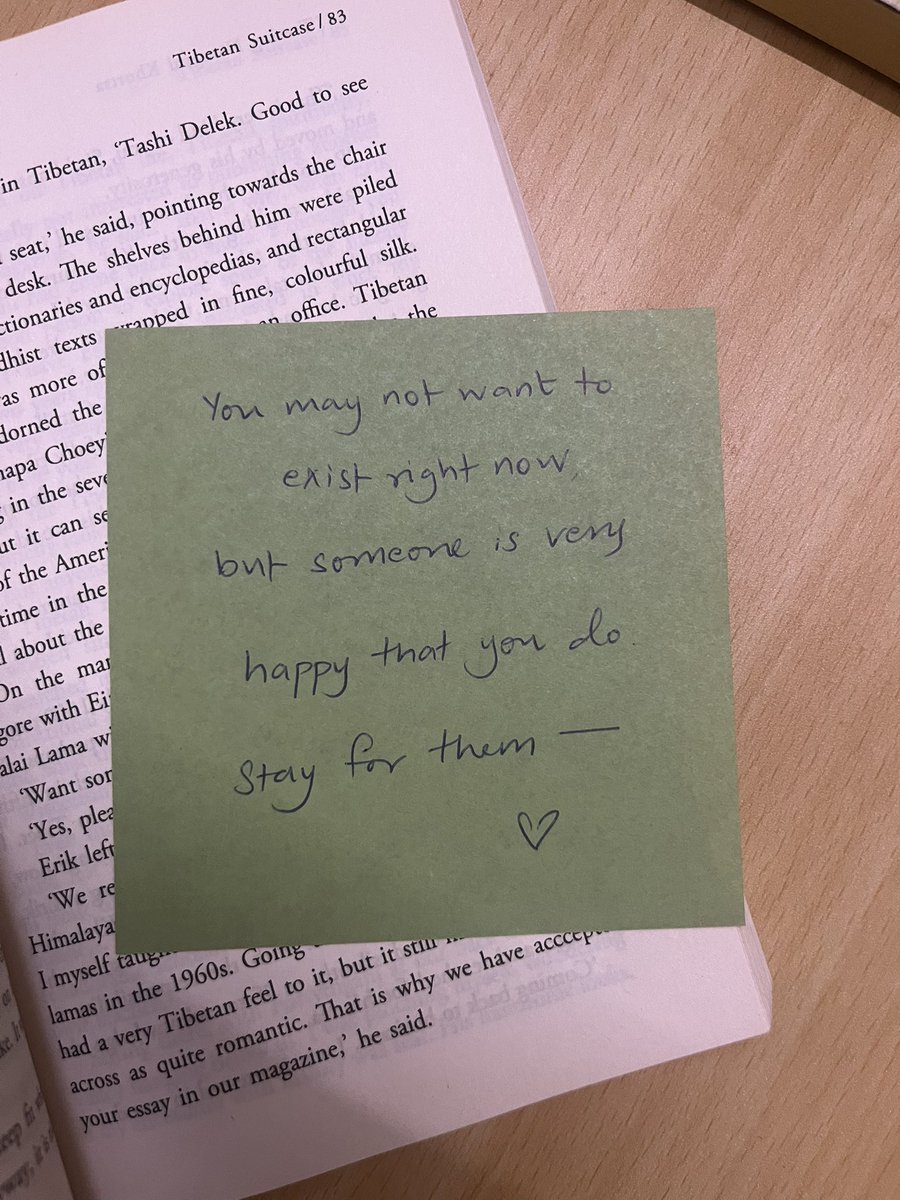 Tibetan Suitcase / 83
in Tibetan, ‘Tashi Delek. Good to see
seat,’ he said, pointing towards the chair
desk. The shelves behind him were piled
ctionaries and encyclopedias, and rectangular
dhist texts wrapped in fine, colourful silk.
as more of an office. Tibetan
dorned the the
napa Choeyi
g in the seve
ut it can se
of the Ameri
time in the
l about the
On the man
gore with Ei
alai Lama wi
‘Want son
‘Yes, plea
Erik left
‘We re
Himalaya
I myself taugh
lamas in the 1960s. Going
had a very Tibetan feel to it, but it still
across as quite romantic. That is why we have acccept
your essay in our magazine,’ he said.
You may not want to
exist right now,
but someone is very
happy that you do.
Stay for them —
♡